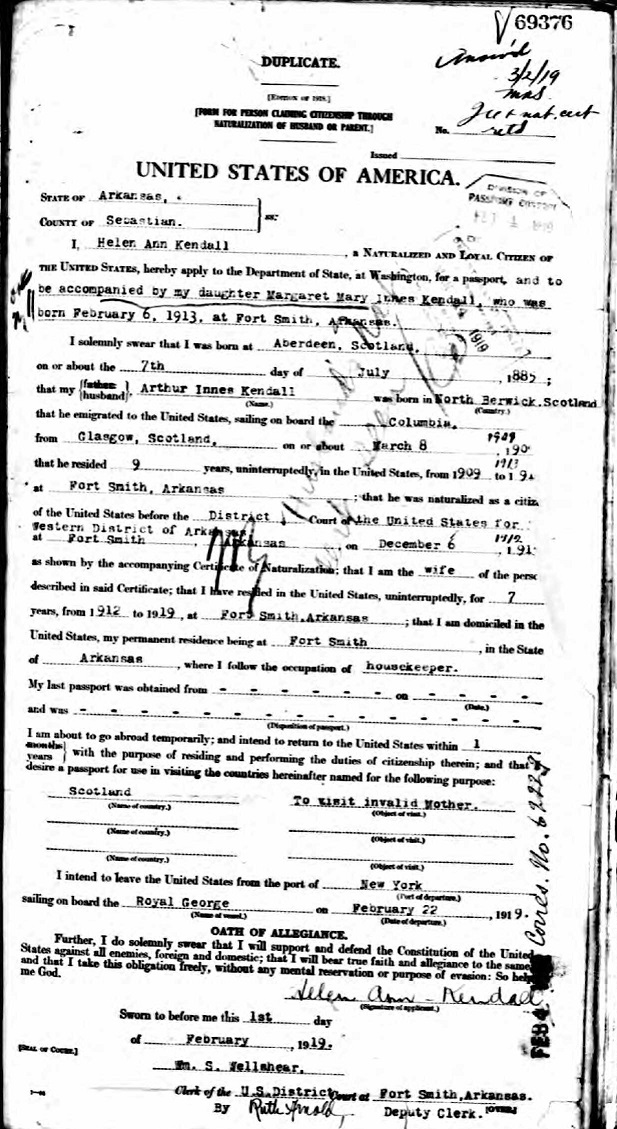 69376
DUPLICATE.
3/2/19
[EDITION OF 1918.]
[FORM FOR PERSON CLAIMING CITIZENSHIP THROUGH
NATURALIZATION OF HUSBAND OR PARENT.]
No.
Issued
UNITED STATES OF AMERICA.
STATE OF Arkansas,
COUNTY OF Sebastian. } ss:
I, Helen Ann Kendall, a NATURALIZED AND LOYAL CITIZEN OF
THE UNITED STATES, hereby apply to the Department of State, at Washington, for a passport, and to
be accompanied by my daughter Margaret Mary Innes Kendall, who was
born February 6, 1913, at Fort Smith, Arkansas.
I solemnly swear that I was born at Aberdeen, Scotland,
on or about the 7th day of July, 1885;
that my {father husband} Arthur Innes Kendall was born in North Berwick.Scotland
(Name.) (Country.)
that he emigrated to the United States, sailing on board the Columbia,
from Glasgow, Scotland, on or about March 8, 190 1909
that he resided 9 years, uninterruptedly, in the United States, from 1909 to 19
at Fort Smith, Arkansas; that he was naturalized as a citiz
of the United States before the District Court of the United States for
Western District of Arkansas,
at Fort Smith, Arkansas, on December 6, 191 1912
as shown by the accompanying Certificate of Naturalization; that I am the wife of the perso
described in said Certificate; that I have resided in the United States, uninterruptedly, for 7
years, from 1912 to 1919, at Fort Smith,Arkansas; that I am domiciled in the
United States, my permanent residence being at Fort Smith, in the State
of Arkansas, where I follow the occupation of housekeeper.
My last passport was obtained from - - - - - - - on - - - -
(Date.)
and was - - - - - - - - - - - - -
(Disposition of passport.)
I am about to go abroad temporarily; and intend to return to the United States within 1
{months years} with the purpose of residing and performing the duties of citizenship therein; and that I
desire a passport for use in visiting the countries hereinafter named for the following purpose:
Scotland To visit invalid Mother.
(Name of country.) (Object of visit.)
(Name of country.) (Object of visit.)
(Name of country.) (Object of visit.)
I intend to leave the United States from the port of New York
(Port of departure.)
sailing on board the Royal George on February 22, 1919.
(Name of vessel.) (Date of departure.)
OATH OF ALLEGIANCE.
Further, I do solemnly swear that I will support and defend the Constitution of the United
States against all enemies, foreign and domestic; that I will bear true faith and allegiance to the same
and that I take this obligation freely, without any mental reservation or purpose of evasion: So help
me God.
Helen Ann Kendall
(Signature of applicant.)
Sworn to before me this 1st day
of February, 1919.
[SEAL OF COURT.]
Wm. S. Wellshear.
Clerk of the U.S.District Court at Fort Smith,Arkansas.
By Ruth Arnold, Deputy Clerk. [OVER.]
DIVISION OF
PASSPORT CONTROL
FEB 4
Corres. No.